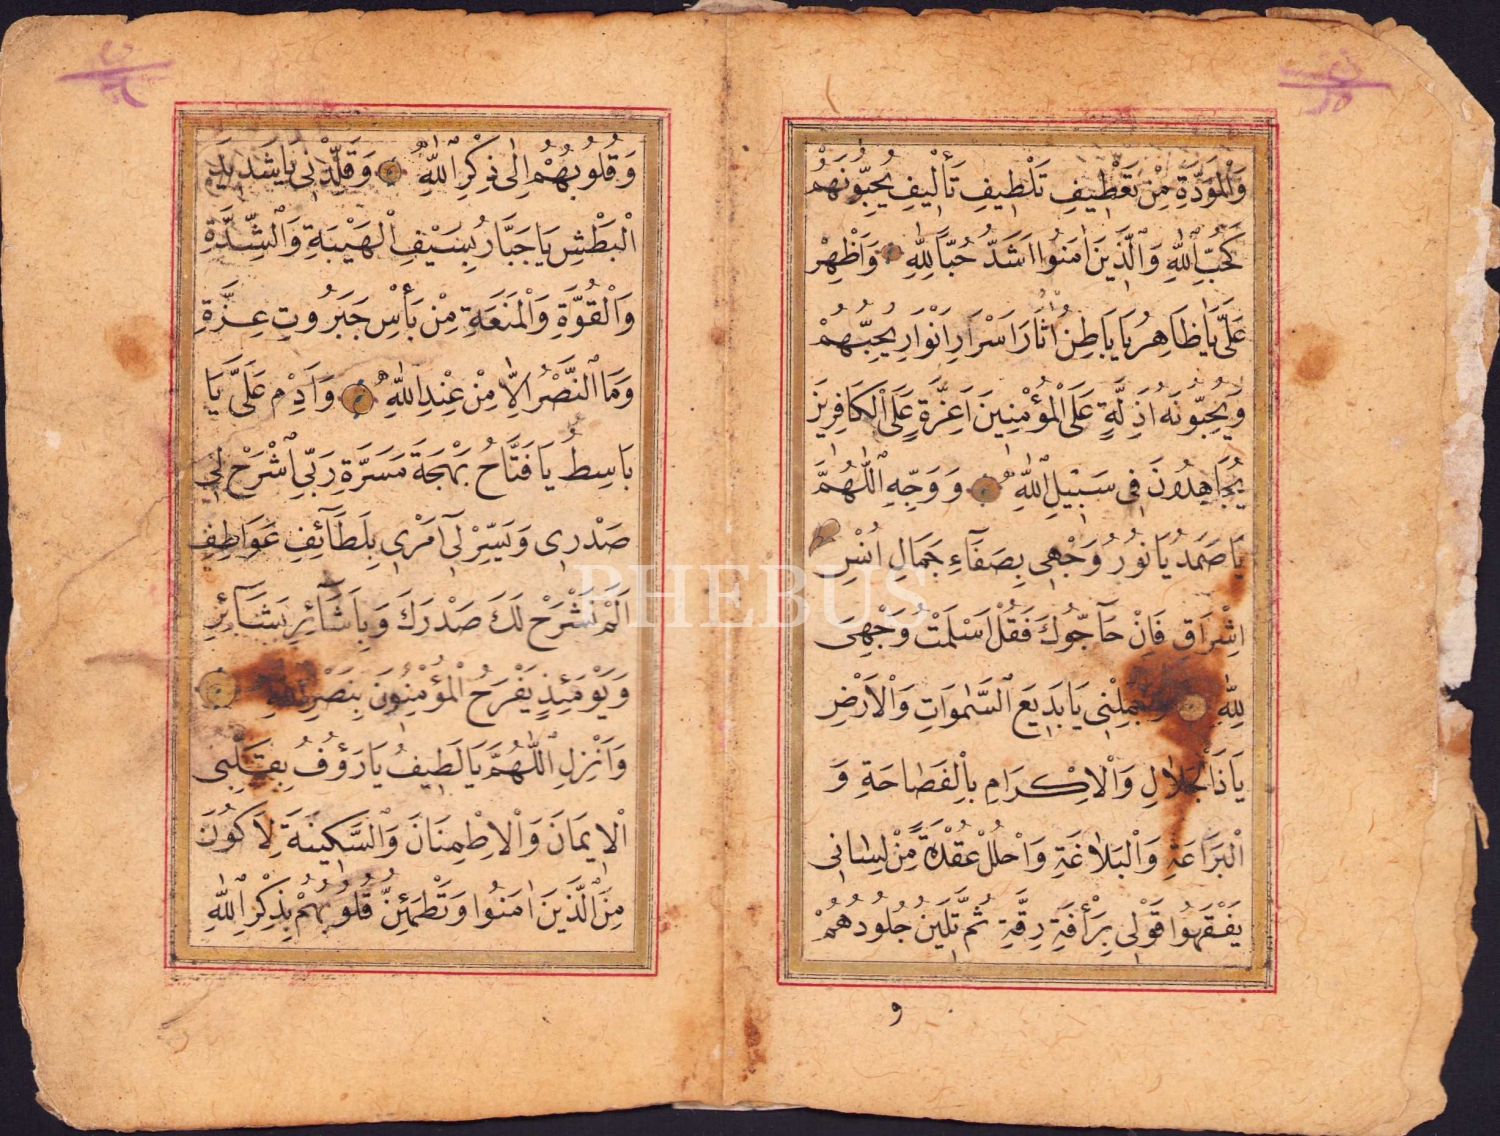 وَالْمَوَدَّةِ مِنْ تَعْطِيفِ تَلْطِيفِ تَأْلِيفِ يُحِبُّونَهُمْ
كَحُبِّ اللّٰهِ وَالَّذِينَ اٰمَنُوا اَشَدُّ حُبًّا لِلّٰهِ وَاَظْهِرْ
عَلَيَّ يَا ظَاهِرُ يَا بَاطِنُ اٰثَارَ اَسْرَارِ اَنْوَارِ يُحِبُّهُمْ
وَيُحِبُّونَهُ اَذِلَّةٍ عَلَى الْمُؤْمِنِينَ اَعِزَّةٍ عَلَى الْكَافِرِينَ
يُجَاهِدُونَ فِي سَبِيلِ اللّٰهِ وَوَجِّهِ اللّٰهُمَّ
يَا صَمَدُ يَا نُورُ وَجْهِي بِصَفَآءِ جَمَالِ اُنْسِ
اِشْرَاقِ فَاِنْ حَآجُّوكَ فَقُلْ اَسْلَمْتُ وَجْهِيَ
لِلّٰهِ وَجَمِّلْنِي يَا بَدِيعَ السَّمٰوَاتِ وَالْاَرْضِ
يَا ذَا الْجَلَالِ وَالْاِكْرَامِ بِالْفَصَاحَةِ وَ
الْبَرَاعَةِ وَالْبَلَاغَةِ وَاحْلُلْ عُقْدَةً مِنْ لِسَانِي
يَفْقَهُوا قَوْلِي بِرَأْفَةِ رِقَّةِ ثُمَّ تَلِينُ جُلُودُهُمْ
و
وَقُلُوبُهُمْ اِلٰى ذِكْرِ اللّٰهِ وَقَلِّدْنِي يَا شَدِيدَ
الْبَطْشِ يَا جَبَّارُ بِسَيْفِ الْهَيْبَةِ وَالشِّدَّةِ
وَالْقُوَّةِ وَالْمَنَعَةِ مِنْ بَأْسِ جَبَرُوتِ عِزَّةِ
وَمَا النَّصْرُ اِلَّا مِنْ عِنْدِ اللّٰهِ وَاَدِمْ عَلَيَّ يَا
بَاسِطُ يَا فَتَّاحُ بَهْجَةَ مَسَرَّةِ رَبِّ اشْرَحْ لِي
صَدْرِي وَيَسِّرْ لِي اَمْرِي بِلَطَآئِفِ عَوَاطِفِ
اَلَمْ نَشْرَحْ لَكَ صَدْرَكَ وَبِاَشَآئِرِ بَشَآئِرِ
وَيَوْمَئِذٍ يَفْرَحُ الْمُؤْمِنُونَ بِنَصْرِ اللّٰهِ
وَاَنْزِلِ اللّٰهُمَّ يَا لَطِيفُ يَا رَؤُفُ بِقَلْبِي
الْاِيمَانَ وَالْاِطْمِنَانَ وَالسَّكِينَةَ لِاَكُونَ
مِنَ الَّذِينَ اٰمَنُوا وَتَطْمَئِنُّ قُلُوبُهُمْ بِذِكْرِ اللّٰهِ
PHEBUS